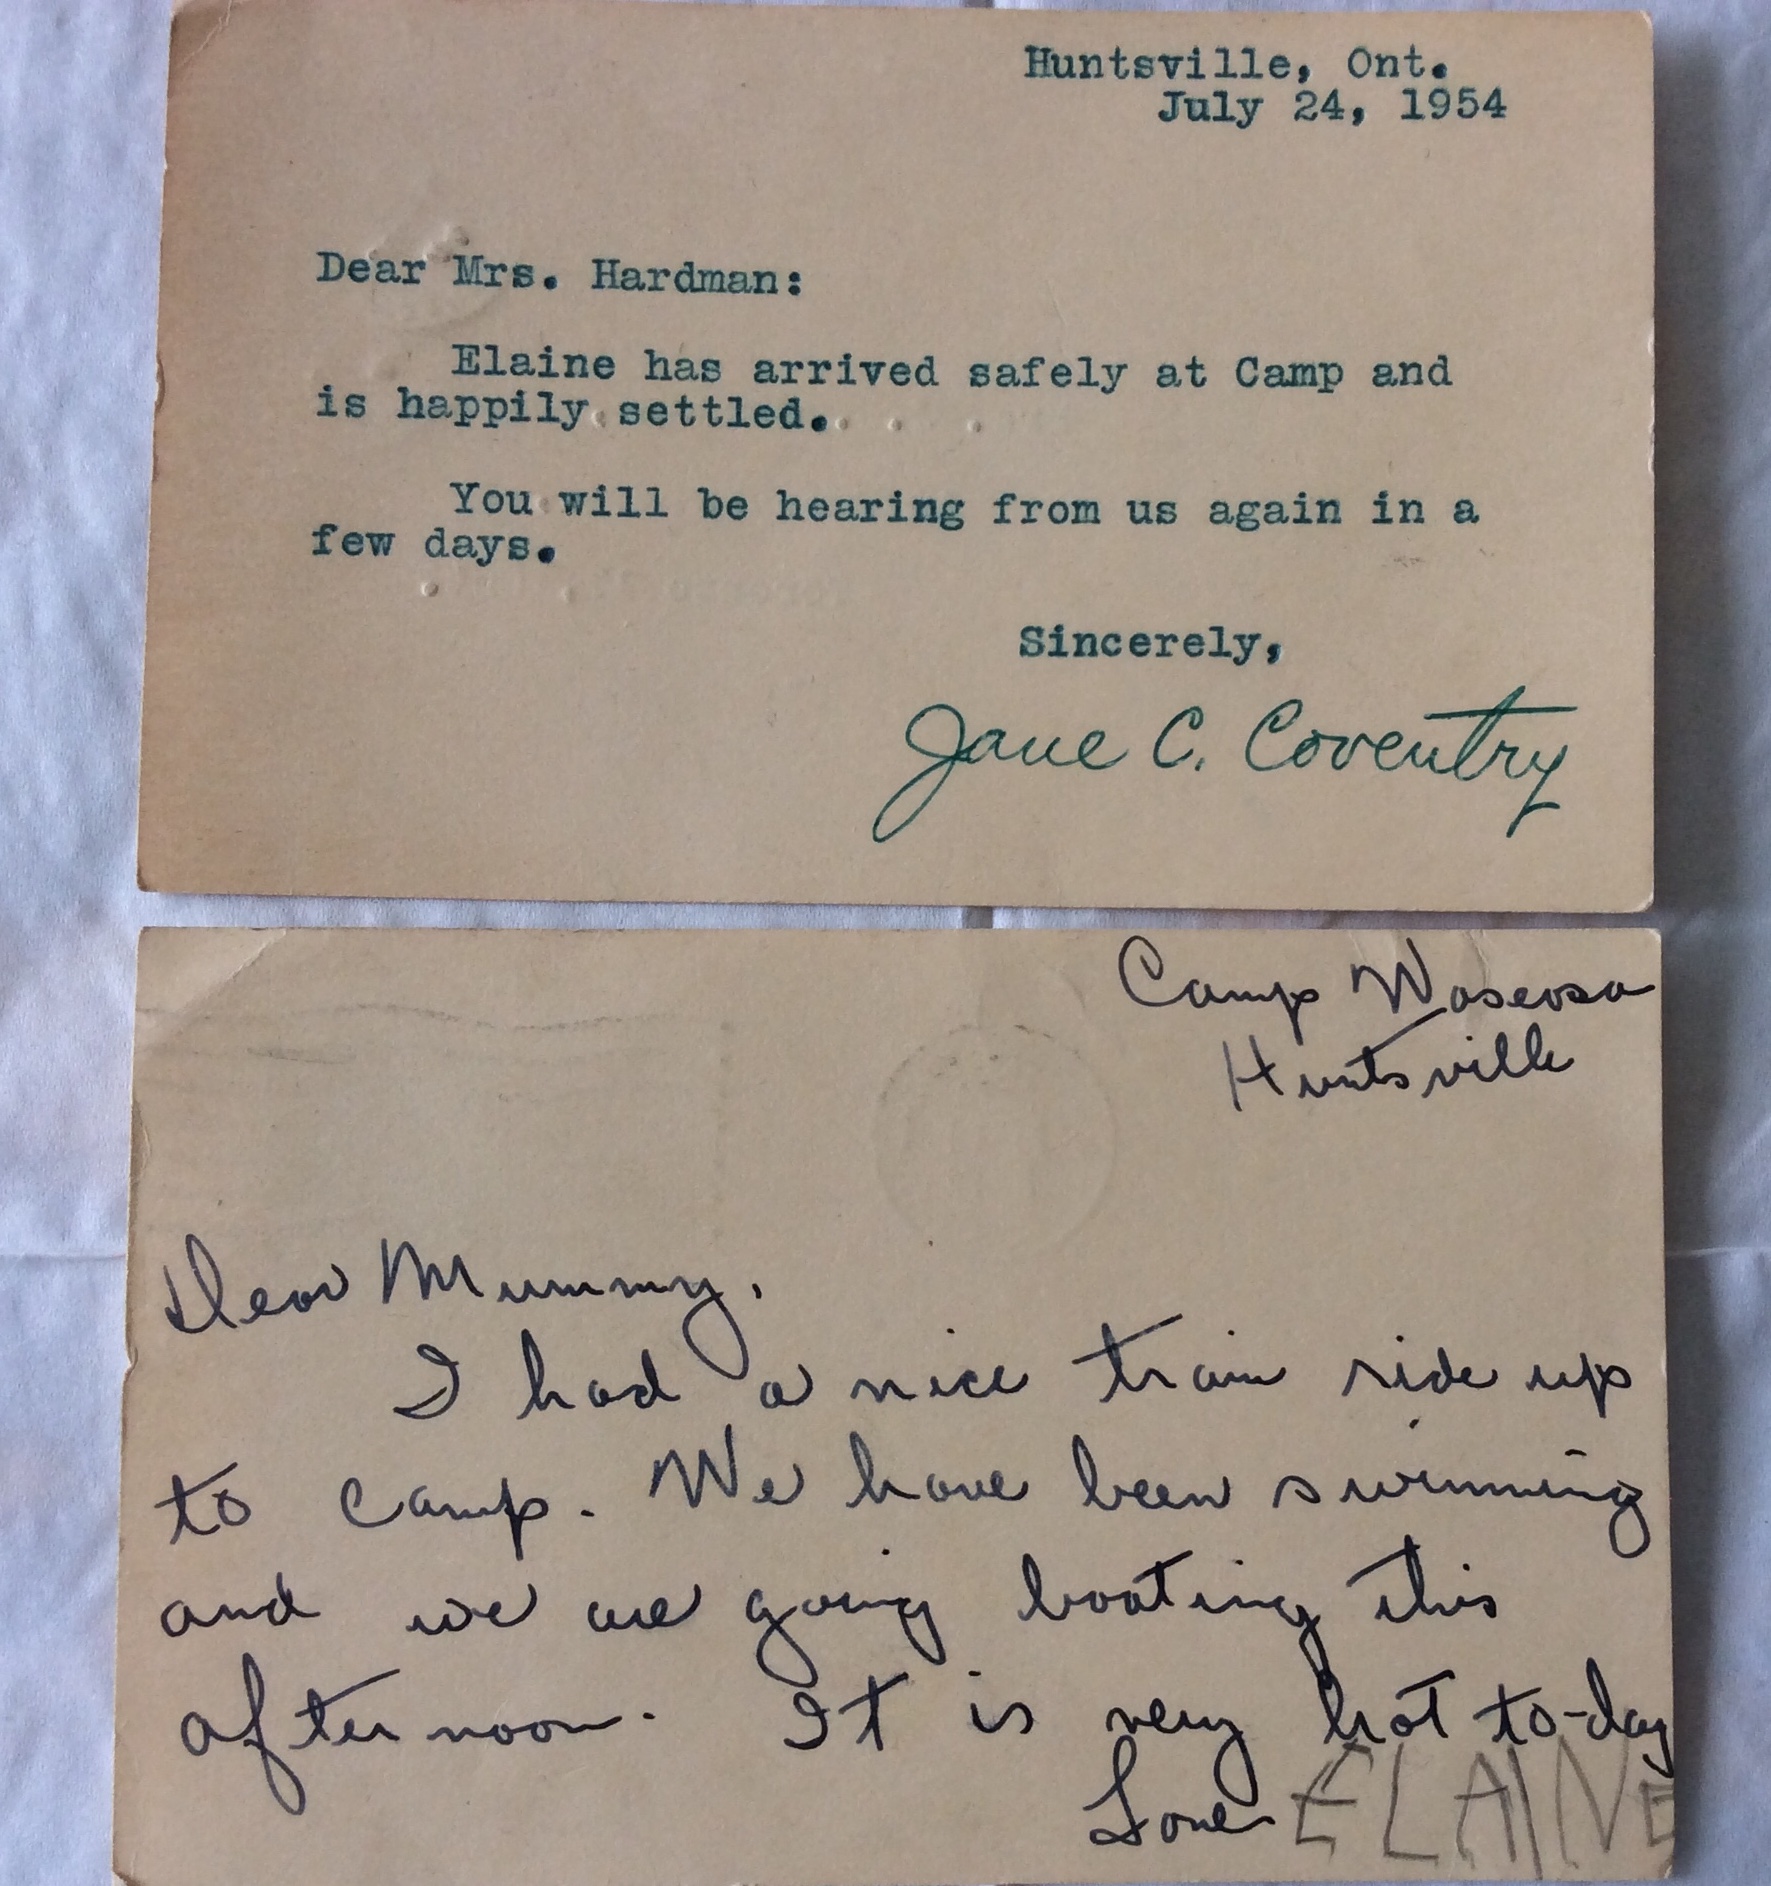 Huntsville, Ont.
July 24, 1954
Dear Mrs. Hardman:
Elaine has arrived safely at Camp and
is happily settled.
You will be hearing from us again in a
few days.
Sincerely,
Jane C. Coventry
Camp Waseosa
Huntsville
Dear Mummy,
I had a nice train ride up
to camp. We have been swimming
and we are going boating this
afternoon. It is very hot to-day
Love ELAINE